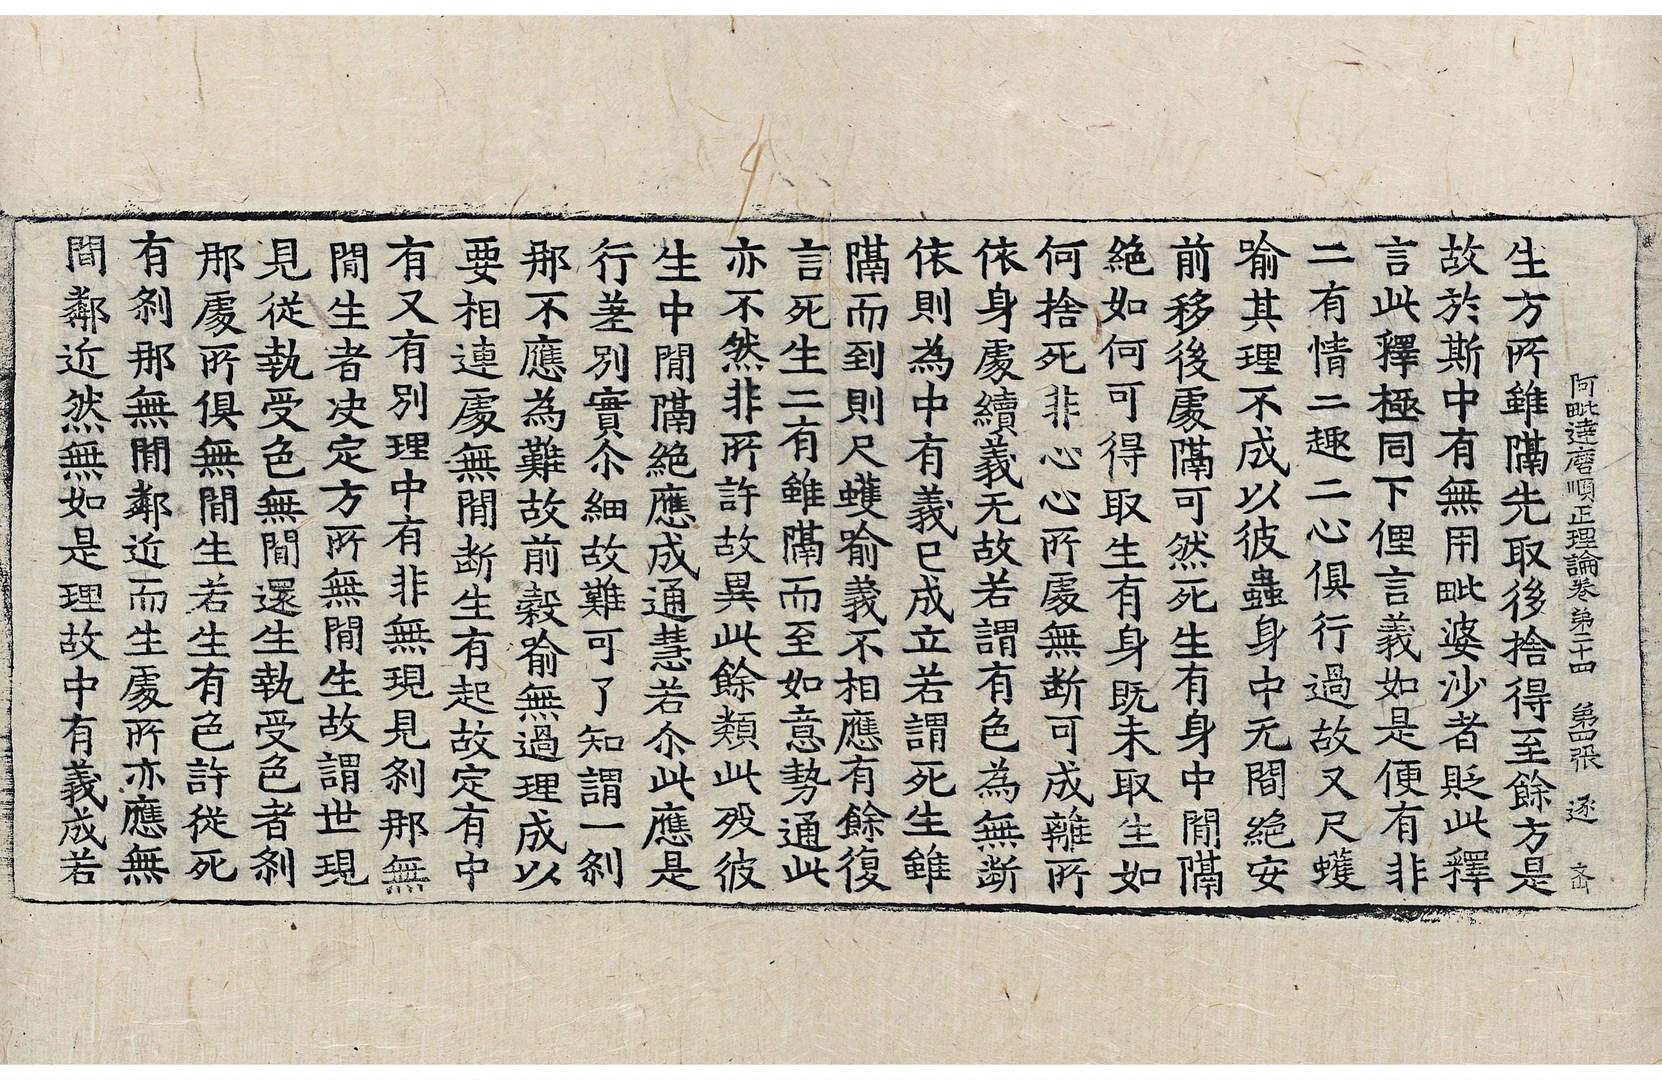 阿毗達磨順正理論卷第二十四　第四張　逐
生方所雖隔先取後捨得至餘方是
故於斯中有無用毗婆沙者貶此釋
言此釋極同下俚言義如是便有非
二有情二趣二心俱行過故又尺蠖
喻其理不成以彼蟲身中无間絕安
前移後處隔可然死生有身中間隔
絕如何可得取生有身旣未取生如
何捨死非心心所處無斷可成離所
依身處續義无故若謂有色為無斷
依則為中有義已成立若謂死生雖
隔而到則尺蠖喻義不相應有餘復
言死生二有雖隔而至如意勢通此
亦不然非所許故異此餘類此歿彼
生中間隔絕應成通慧若尒此應是
行差別實尒細故難可了知謂一剎
那不應為難故前縠喻無過理成以
要相連處無間断生有起故定有中
有又有別理中有非無現見剎那無
間生者決定方所無間生故謂世現
見從執受色無間還生執受色者剎
那處所俱無間生若生有色許從死
有剎那無間鄰近而生處所亦應無
間鄰近然無如是理故中有義成若